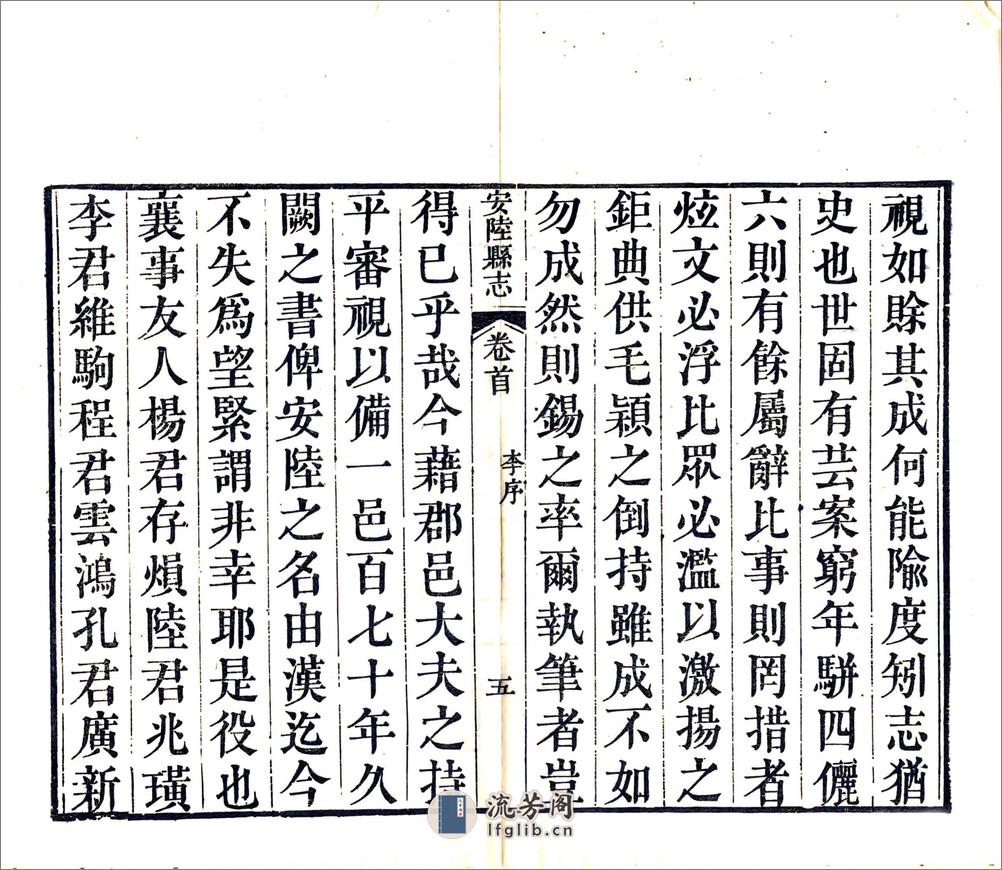 視如賒其成何能隃度矧志猶
史也世固有芸案窮年駢四儷
六則有餘屬辭比事則罔措者
炫文必浮比眾必濫以激揚之
鉅典供毛穎之倒持雖成不如
勿成然則錫之率爾執筆者豈
安陸縣志 卷首 李序 五
得已乎哉今藉郡邑大夫之持
平審視以備一邑百七十年久
闕之書俾安陸之名由漢迄今
不失為望緊謂非幸耶是役也
襄事友人楊君存熉陸君兆璜
李君維駒程君雲鴻孔君廣新
流芳阁
lfglib.cn